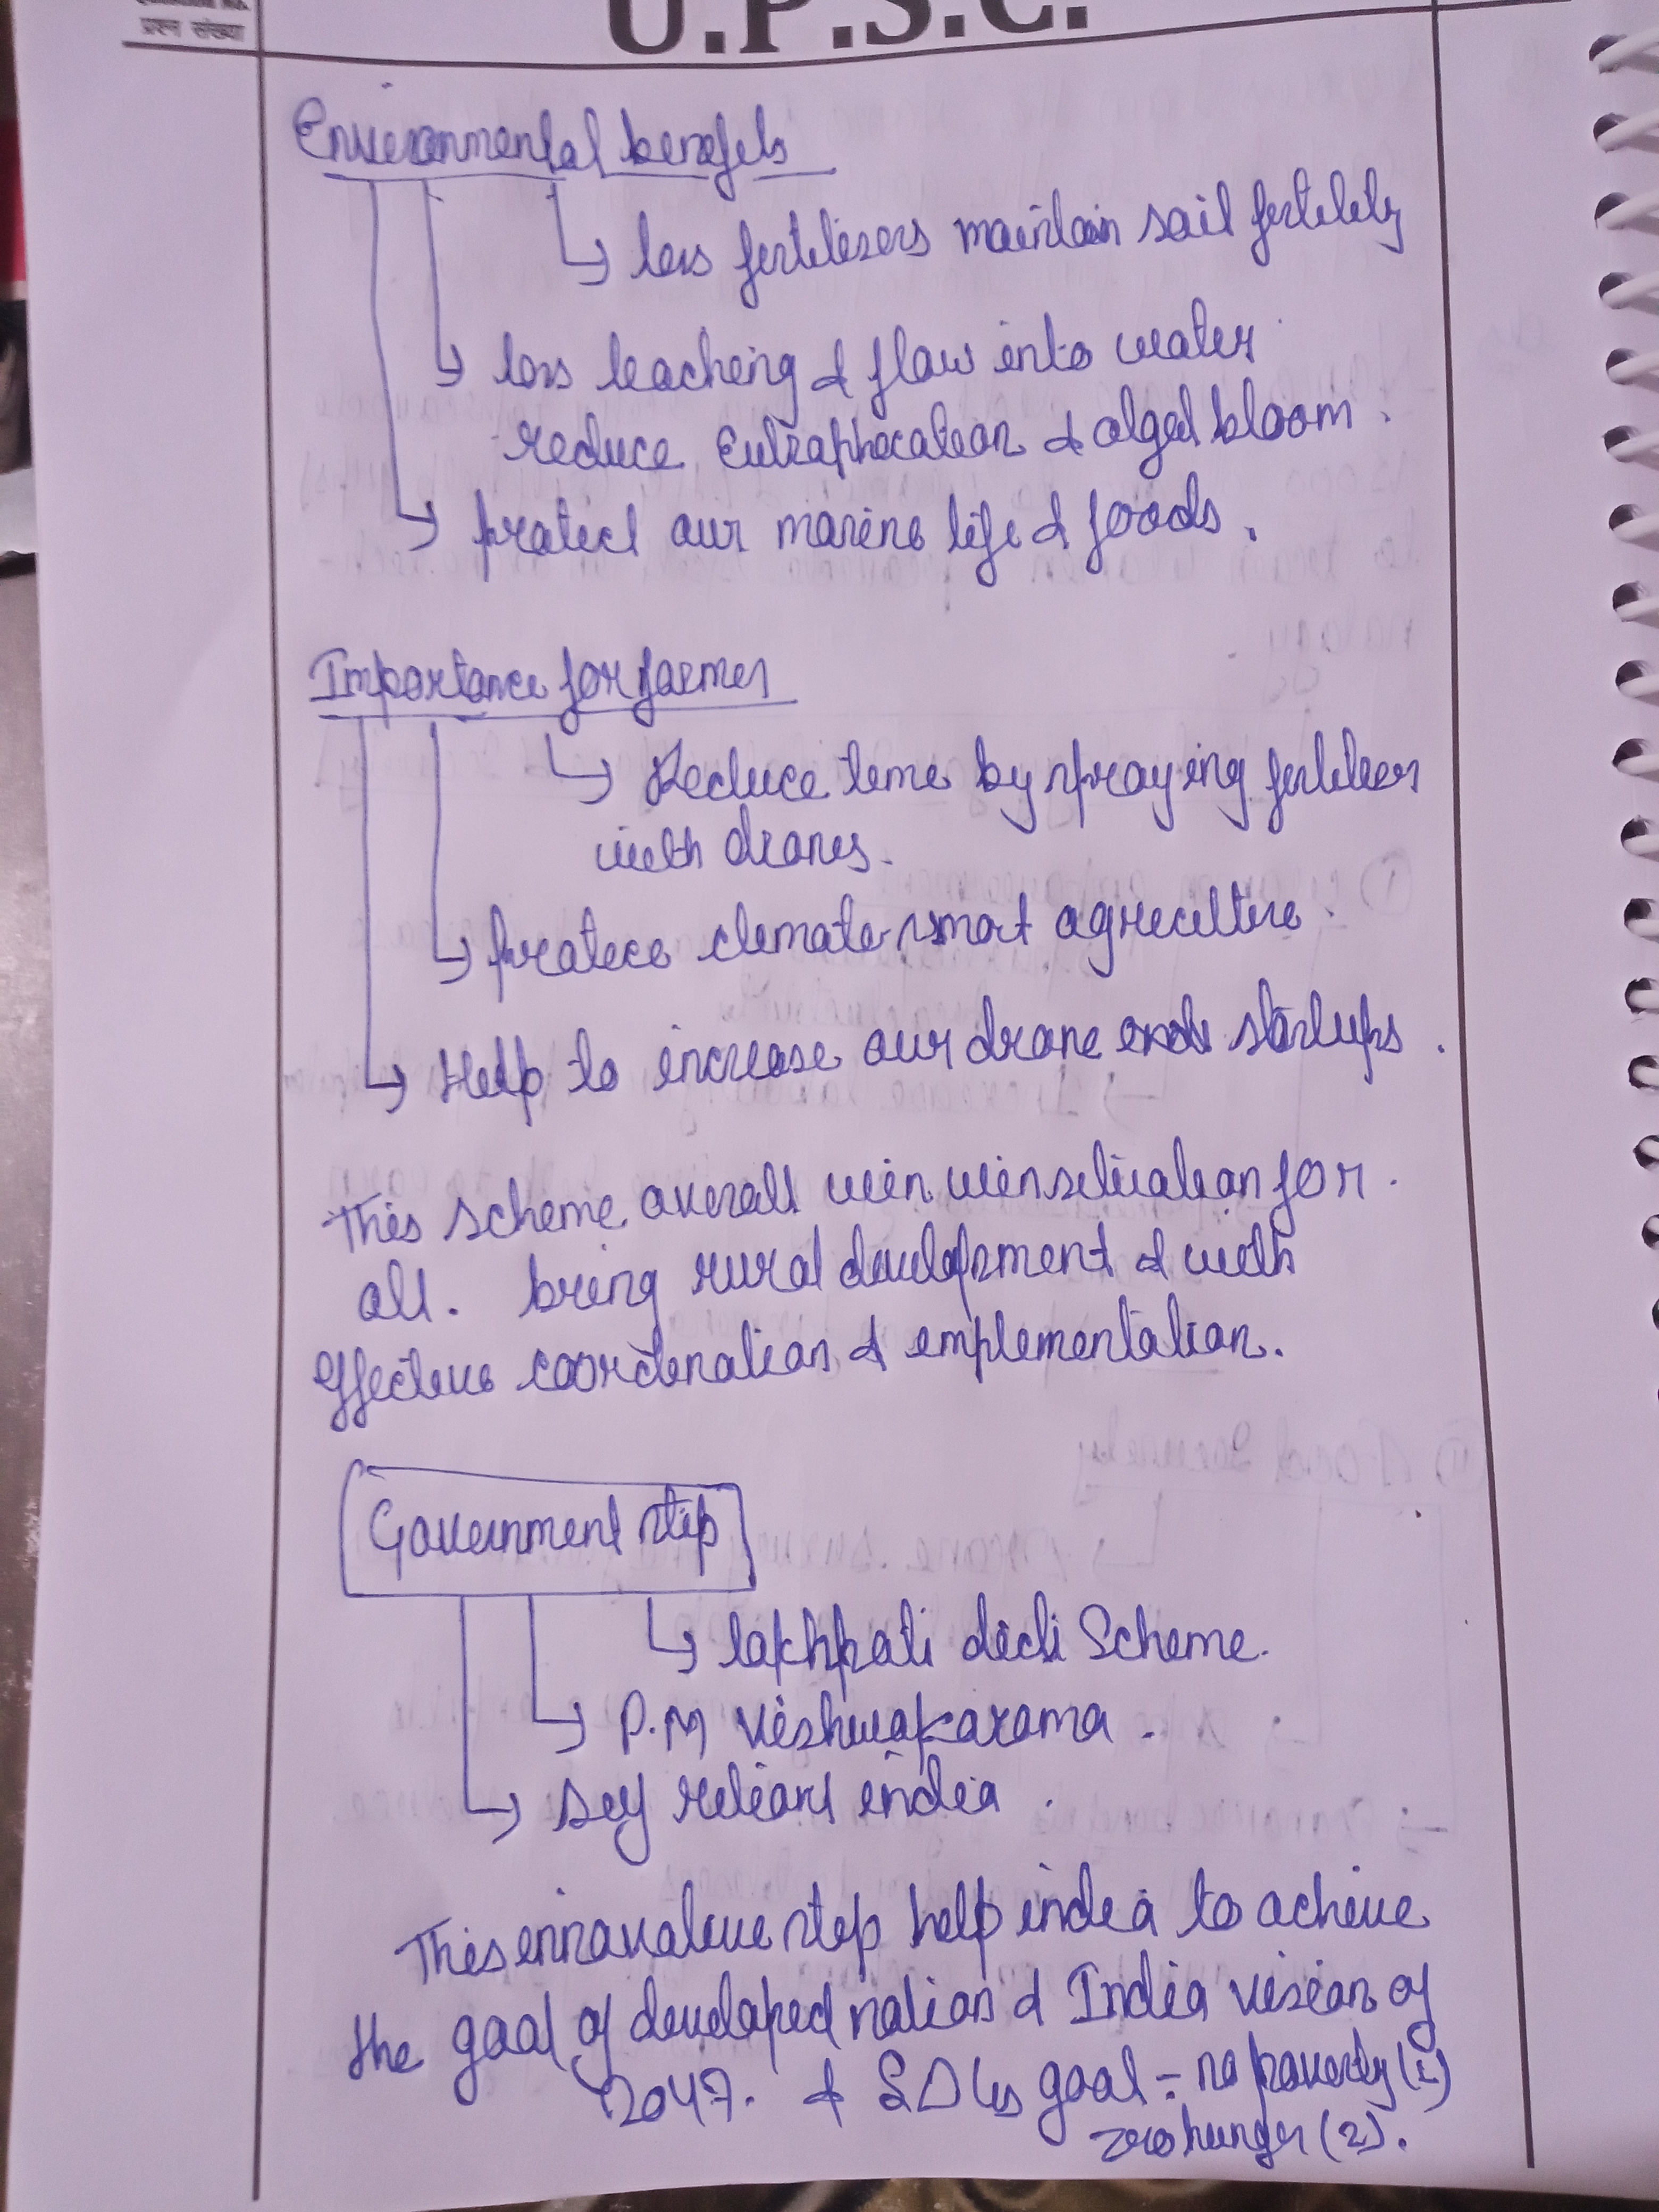 प्रश्न संख्या
U.P.S.C.
Environmental benefits
less fertilisers maintain soil fertility
less leaching & flow into water
reduce Eutrophication & algal bloom.
protect our marine life & foods.
Importance for farmer
Reduce time by spraying fertiliser
with drones.
climate smart agriculture.
Help to increase our drone startups.
This scheme overall win win situation for
all. bring rural development & with
effective coordination & implementation.
Government step
lakhpati didi Scheme.
P.M Vishwakarama.
self reliant india.
This innovative step help india to achieve
the goal of developed nation & India vision of
2047. & SDGs goal - no poverty (1)
zero hunger (2).